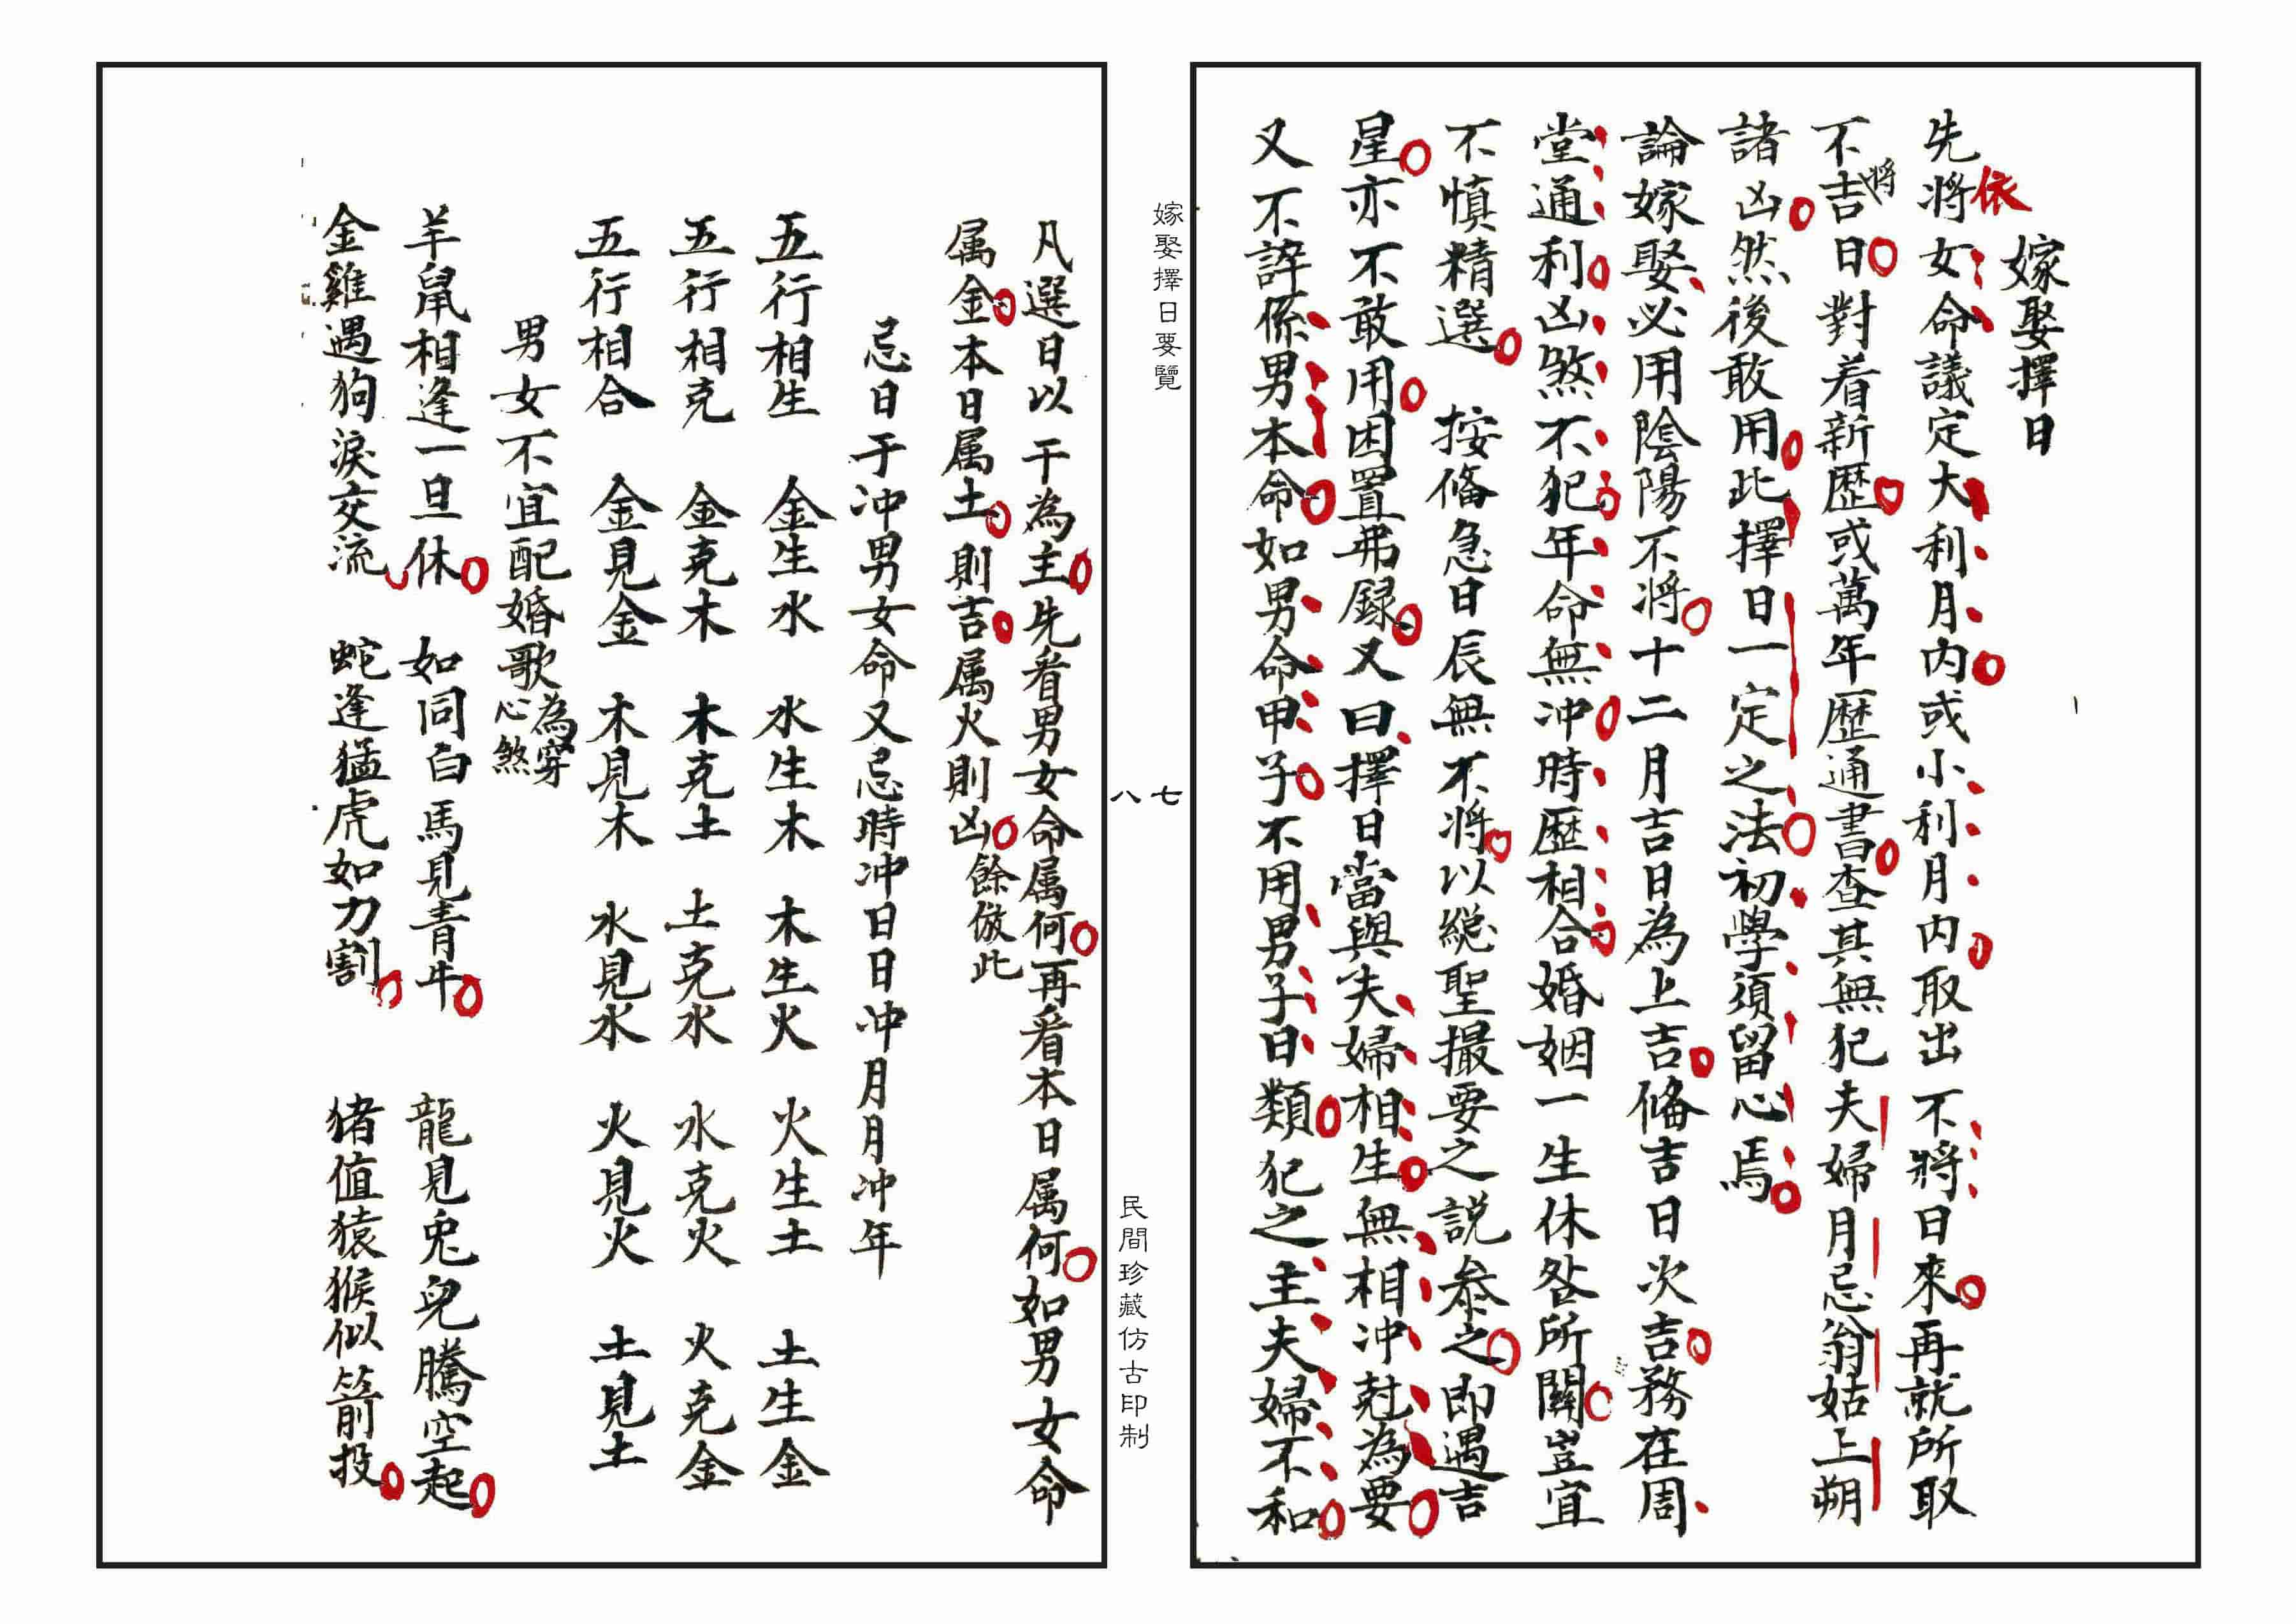 嫁娶擇日
依
先將女命議定大利月內或小利月內取出不將日來再就所取
不將吉日對着新歷或萬年歷通書查其無犯夫婦月忌翁姑上朔
諸凶然後敢用此擇日一定之法初學須留心焉
論嫁娶必用陰陽不將十二月吉日為上吉俻吉日次吉務在周
堂通利凶煞不犯年命無冲時歷相合婚姻一生休咎所關豈宜
不慎精選　按俻急日辰無不將以総聖撮要之説叅之即遇吉
星亦不敢用因置弗録又曰擇日當與夫婦相生無相冲尅為要
又不諱係男本命如男命甲子不用男子日類犯之主夫婦不和
嫁娶擇日要覽
七
八
民間珍藏仿古印制
凡選日以干為主先看男女命属何再看本日属何如男女命
属金本日属土則吉属火則凶餘倣此
忌日于冲男女命又忌時冲日日冲月月冲年
五行相生　金生水　水生木　木生火　火生土　土生金
五行相克　金克木　木克土　土克水　水克火　火克金
五行相合　金見金　木見木　水見水　火見火　土見土
男女不宜配婚歌為穿心煞
羊鼠相逢一旦休　如同白馬見青牛　龍見兎兒騰空起
金雞遇狗淚交流　蛇逢猛虎如力割　猪值猿猴似箭投